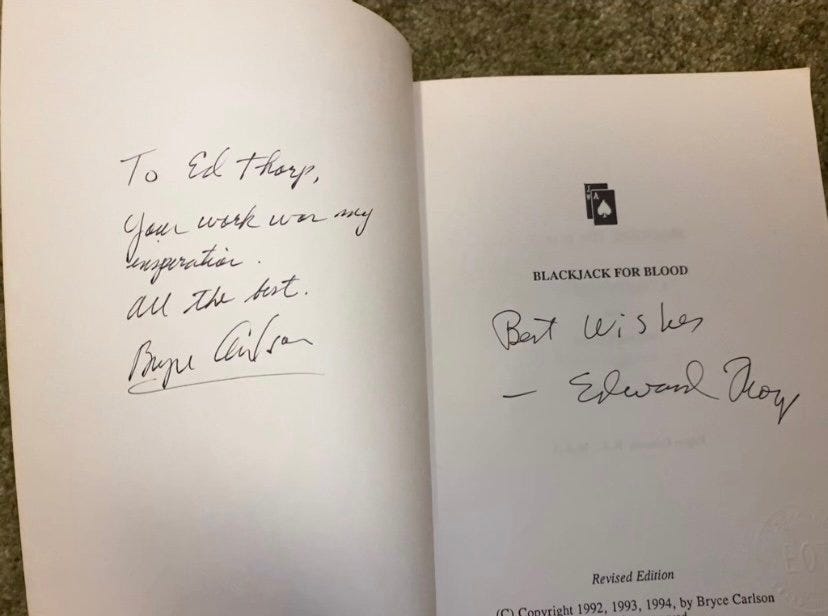 To Ed Thorp,
Your work was my
inspiration.
All the best.
Bryce Carlson
J
A
BLACKJACK FOR BLOOD
Best Wishes
— Edward Thorp
Revised Edition
(C) Copyright 1992, 1993, 1994, by Bryce Carlson
EOT